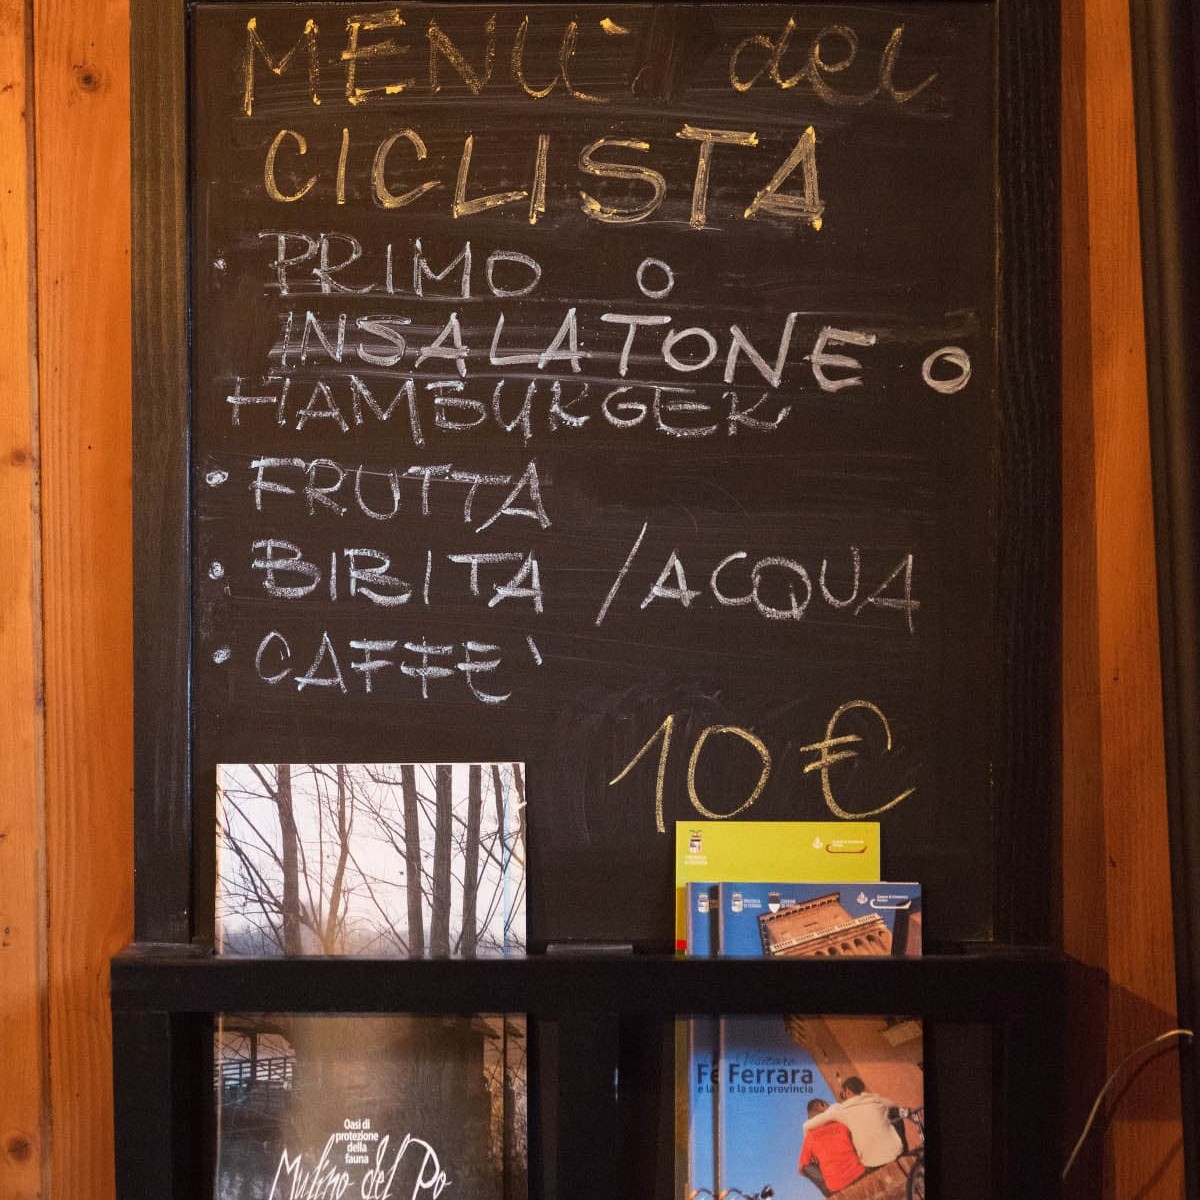 MENÙ del
CICLISTA
• PRIMO o
INSALATONE o
HAMBURGER
• FRUTTA
• BIBITA / ACQUA
• CAFFE'
10€
Oasi di
protezione
della
fauna
Mulino del Po
Visitare
Fe Ferrara
e la e la sua provincia